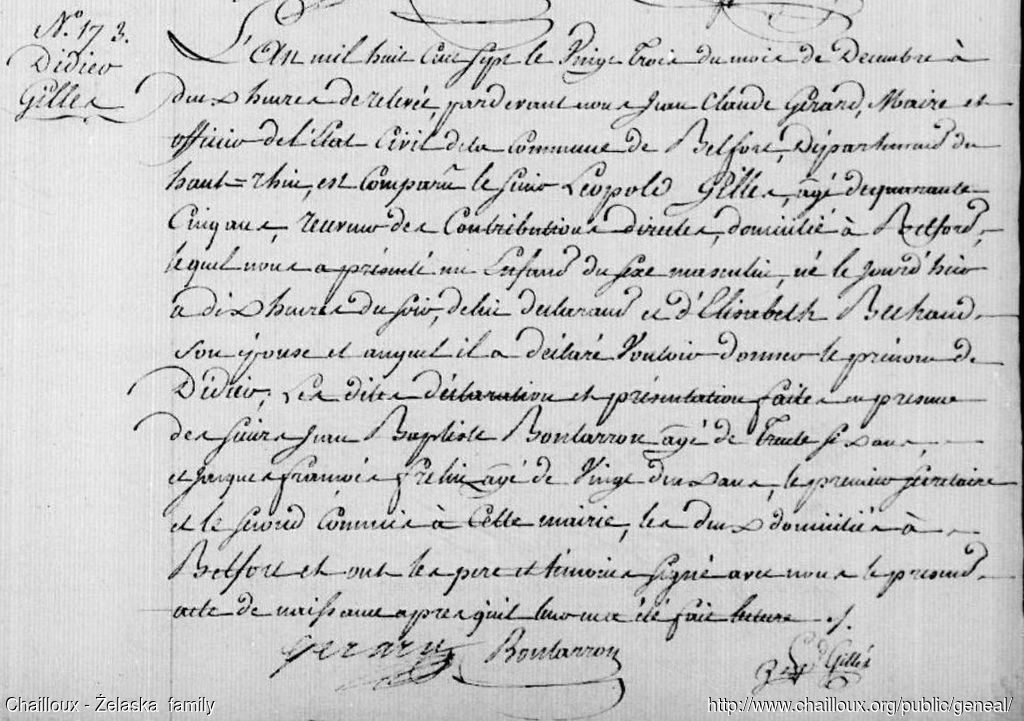 N.º 173.
Didier
Gilles
L'An mil huit Cent Sept le Vingt Trois du mois de Decembre à
deux heures de relevée, pardevant nous Jean Claude Gérard, Maire et
officier de l'Etat Civil de la Commune de Belfort, Départemend du
haut=rhin, est Comparu le sieur Léopold Gilles, âgé de quarante
Cinq ans, receveur des Contributions directes, domicilié à Belford,
lequel nous a présenté un Enfand du sexe masculin, né le jourd'hier
a dix heures du soir, de lui declarand et d'Elisabeth Bechaud
son épouse et auquel il a déclaré Vouloir donner le prénom de
Didier, Les dites déclaration et présentation faites en presence
des sieurs Jean Baptiste Bontarron âgé de Trente six ans,
et Jacques françois frelin âgé de Vingt deux ans, le premier secretaire
et le second Commis à Cette mairie, les deux domiciliés à
Belfort et ont les pere et témoins signé avec nous le presend
acte de naissance apres qu'il leur en a été fait lecture ./.
Gerard Bontarron
Gilles
Chailloux - Żelaska family
http://www.chailloux.org/public/geneal/